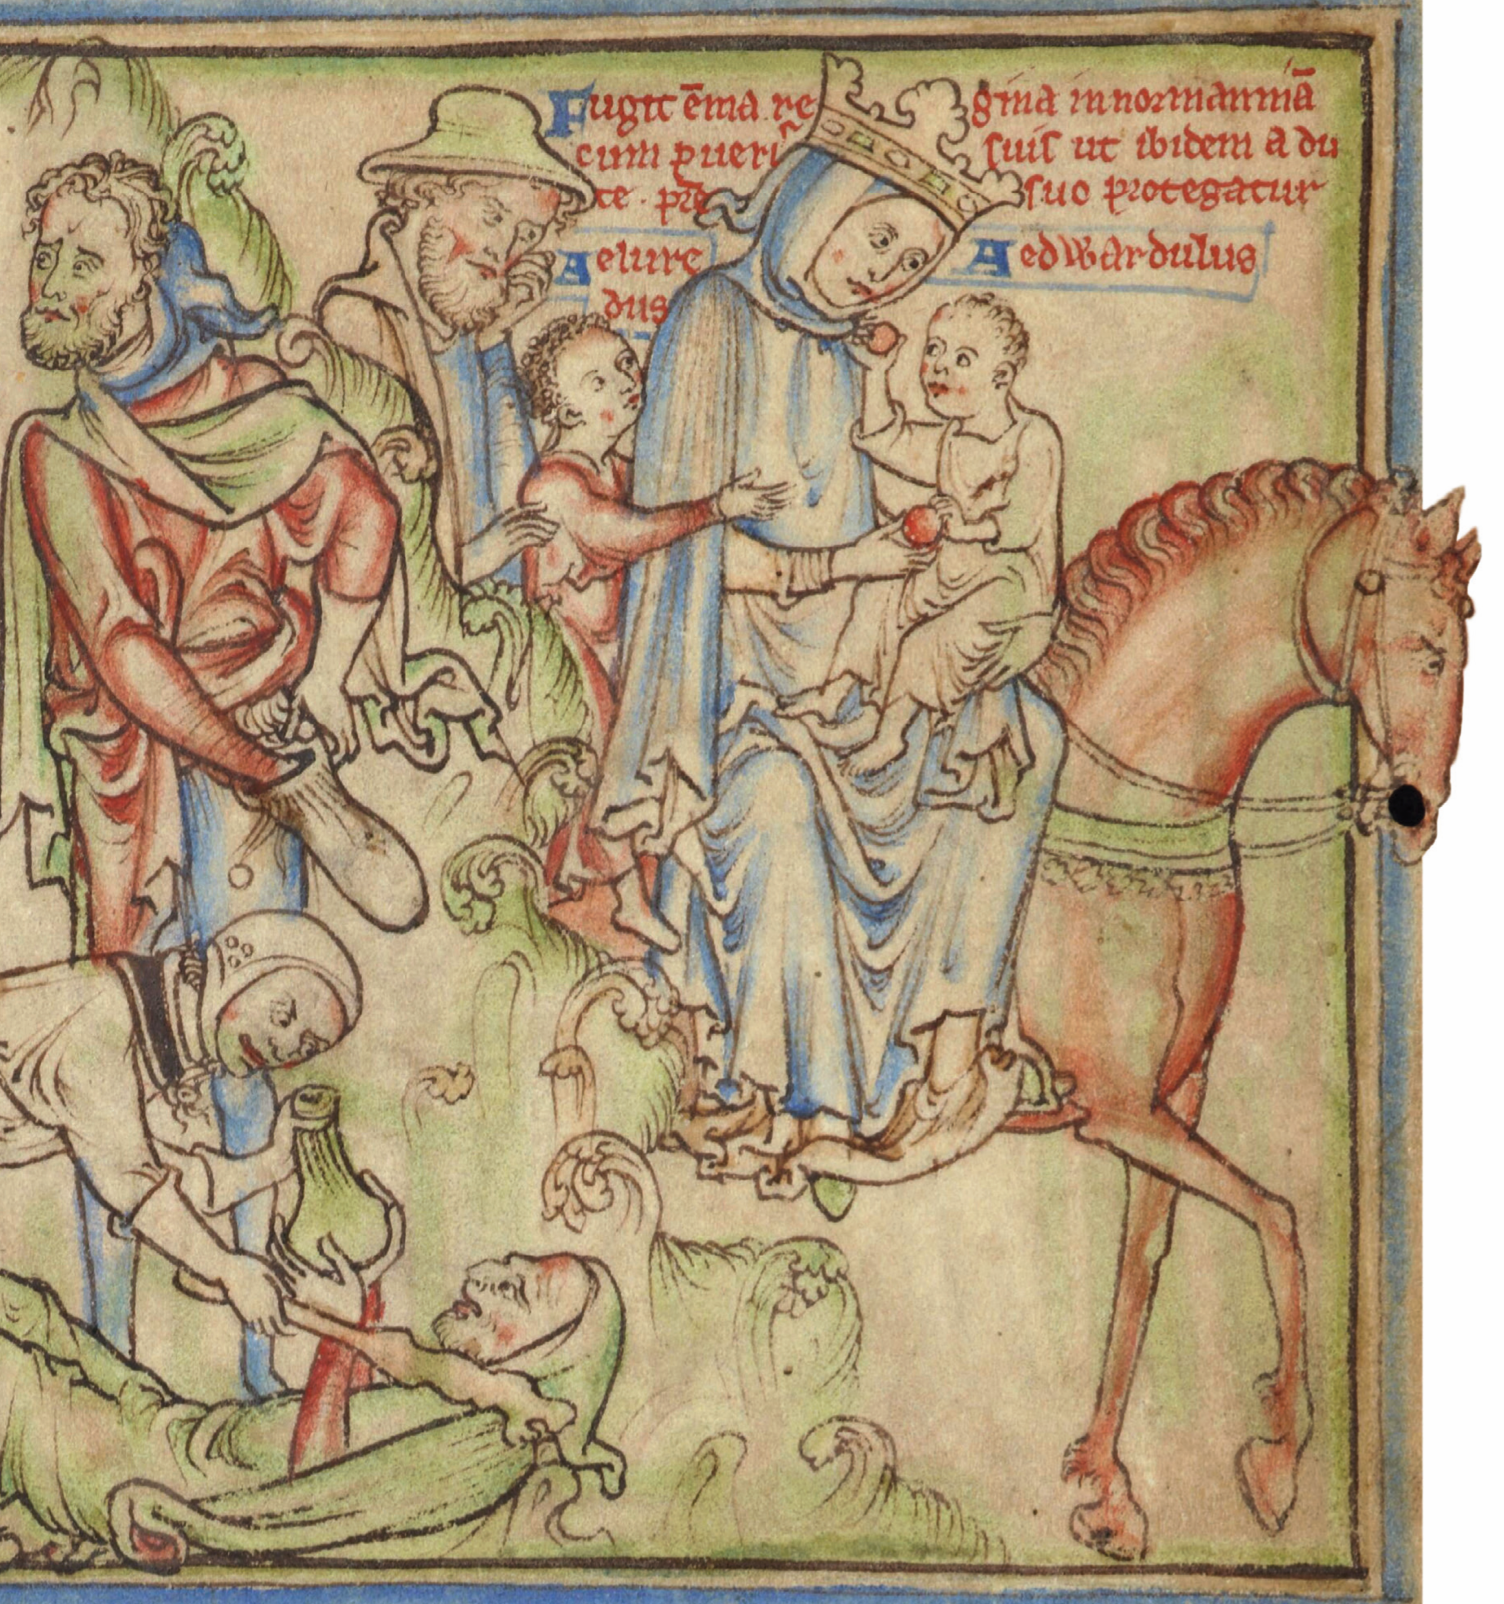 Fugit ēma regina in normanniā
cum pueris̄ suis ut ibidem a du
ce. prē suo protegatur
Aelure
dus
Aedwardulus